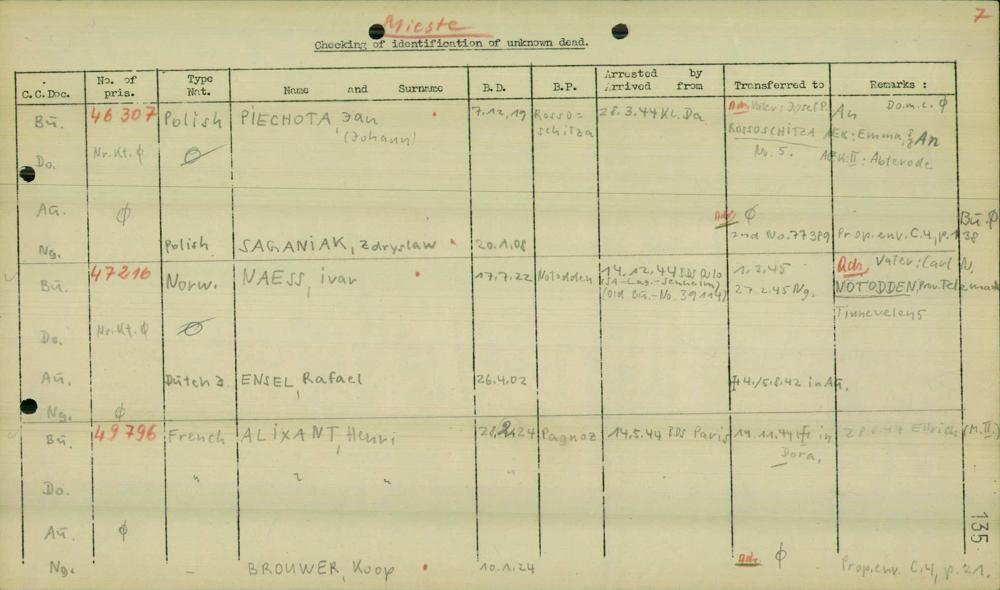 7
Mieste
Checking of identification of unknown dead.
C.C.Doc. No. of pris. Type Nat. Name and Surname B.D. B.P. Arrested by Arrived from Transferred to Remarks :
Bu. 46 307 Polish PIECHOTA, Jan 7.12.19 Rosso= 28.3.44 KL.Da Adr. Vater: Josef P. An Do.m.c. Ø
(Johann) schitza ROSSOSCHITZA AEK: Emma, An
Do. Nr.Kt. Ø Ø Nr. 5. AEK II: Abterode
Au. Ø Adr. Ø Bu. Ø
Ng. Polish SAGANIAK, Zdryslaw 20.1.08 2nd No. 77389 Prop.env. C.4, p.138
Bu. 47216 Norw. NAESS, ivar 17.7.22 Notodden 14.12.44 BDS Oslo 1.2.45 Adr. Vater: Carl N.
(SA-Lag.-Sennheim) 27.2.45 Ng. NOTODDEN, Prov. Telemark
(Old Bu.-No. 39114) Tinnevelen 5
Do. Nr.Kt. Ø Ø
Au. Dutch ENSEL, Rafael 26.4.02 4./5.8.42 in Au.
Ng. Ø
Bu. 49796 French ALIXANT, Henri 28.2.24 Pagnoz 14.5.44 BDS Paris 19.11.44 in Ellrich (M.II.)
Dora.
Do. " " " "
Au. Ø
135
Ng. - BROUWER, Koop 10.1.24 Adr. Ø Prop.env. C.4, p.21.